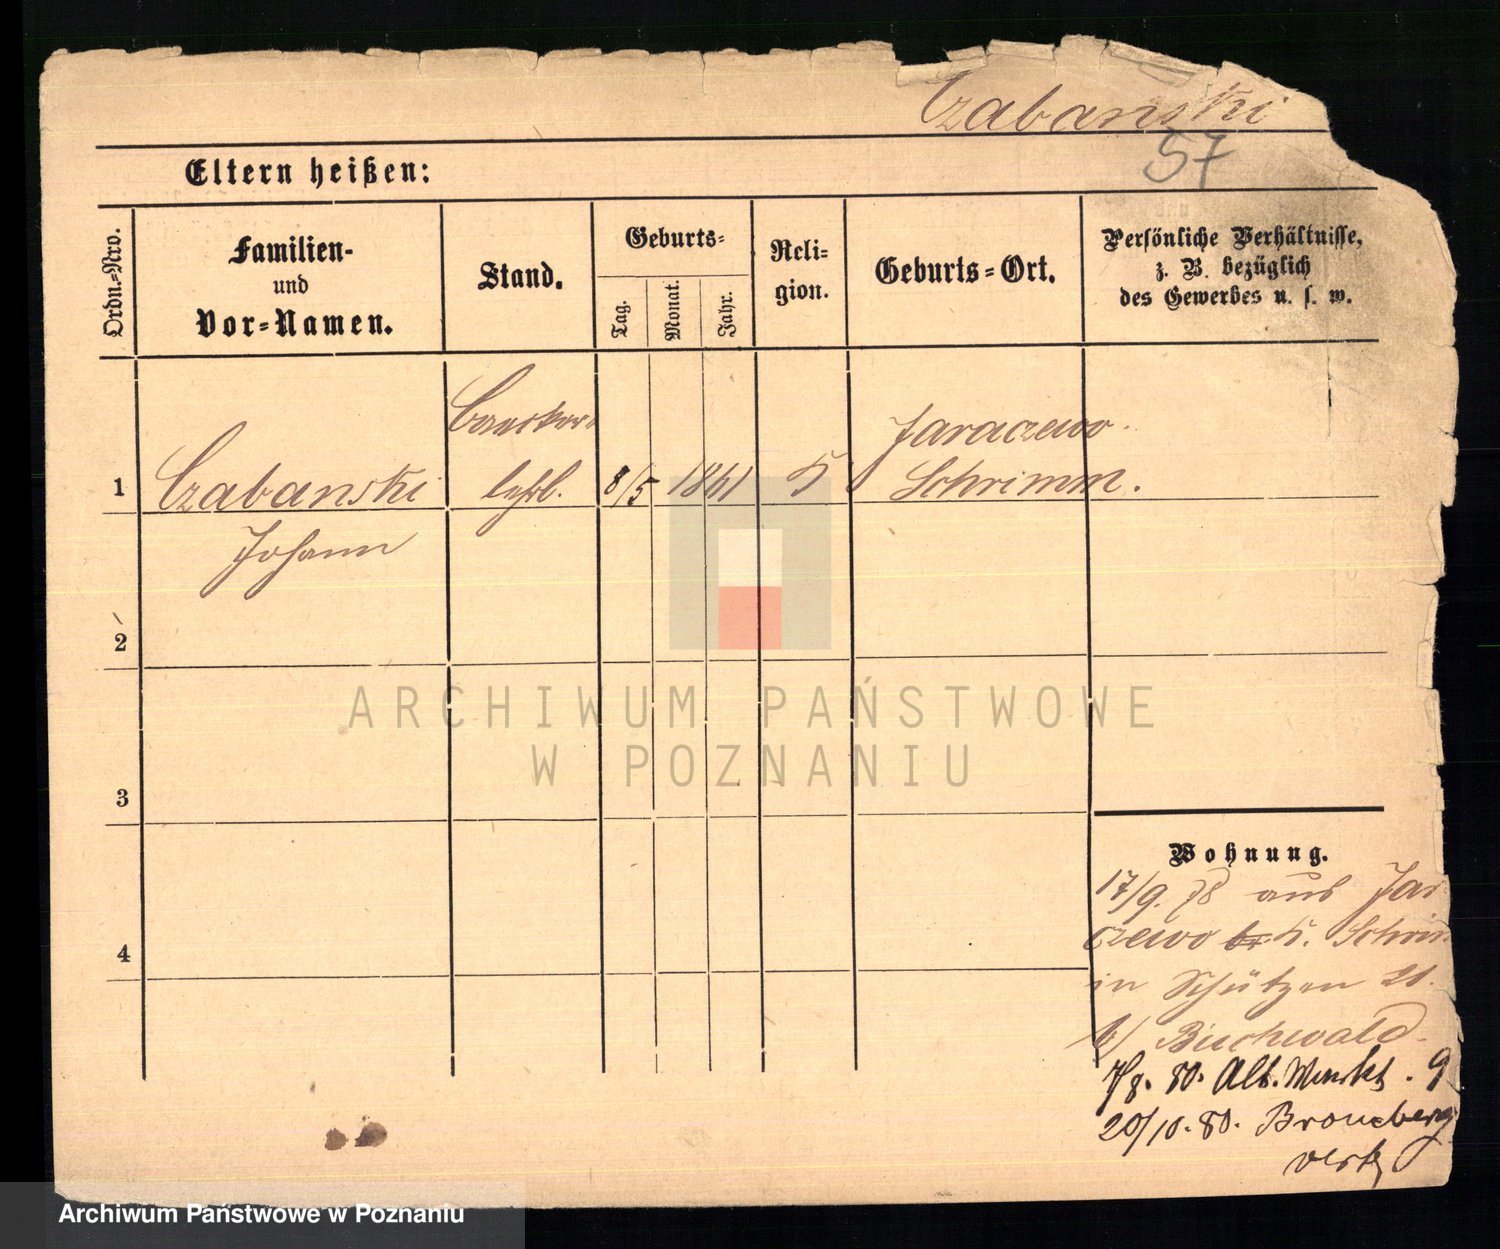 Czabanski
57
Eltern heißen:
Ordn.-Nro.
Familien-
und
Vor-Namen.
Stand.
Geburts-
Tag.
Monat.
Jahr.
Reli-
gion.
Geburts-Ort.
Persönliche Verhältnisse,
z. B. bezüglich
des Gewerbes u. s. w.
1
Czabanski
Johann
lehrl.
8/5
1861
K
Jaraczewo.
Schrimm.
2
3
4
Wohnung.
17/9. 78 aus Jar
czewo Kr. Schrim
in Schützen 21.
b/ Buchwald.
80. Alt. Markt. 9
20/10. 80. Bromberg
verz
ARCHIWUM PAŃSTWOWE
W POZNANIU
Archiwum Państwowe w Poznaniu